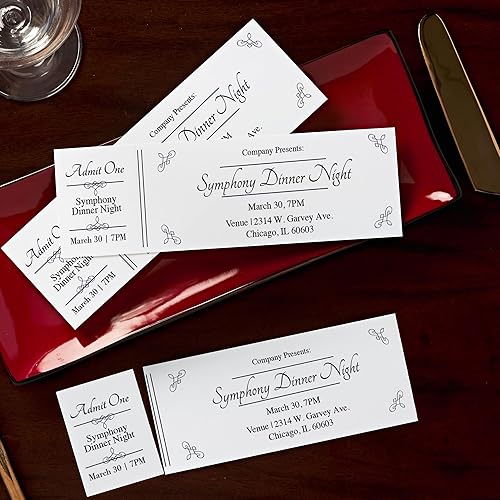 Presents:
Dinner Night
March 30, 7PM
Company Presents:
Symphony Dinner Night
March 30, 7PM
Venue | 2314 W. Garvey Ave.
Chicago, IL 60603
Admit One
Symphony
Dinner Night
March 30 | 7PM
Admit One
Symphony
Dinner Night
March 30 | 7PM
Company Presents:
Symphony Dinner Night
March 30, 7PM
Venue | 2314 W. Garvey Ave.
Chicago, IL 60603
Admit One
Symphony
Dinner Night
March 30 | 7PM